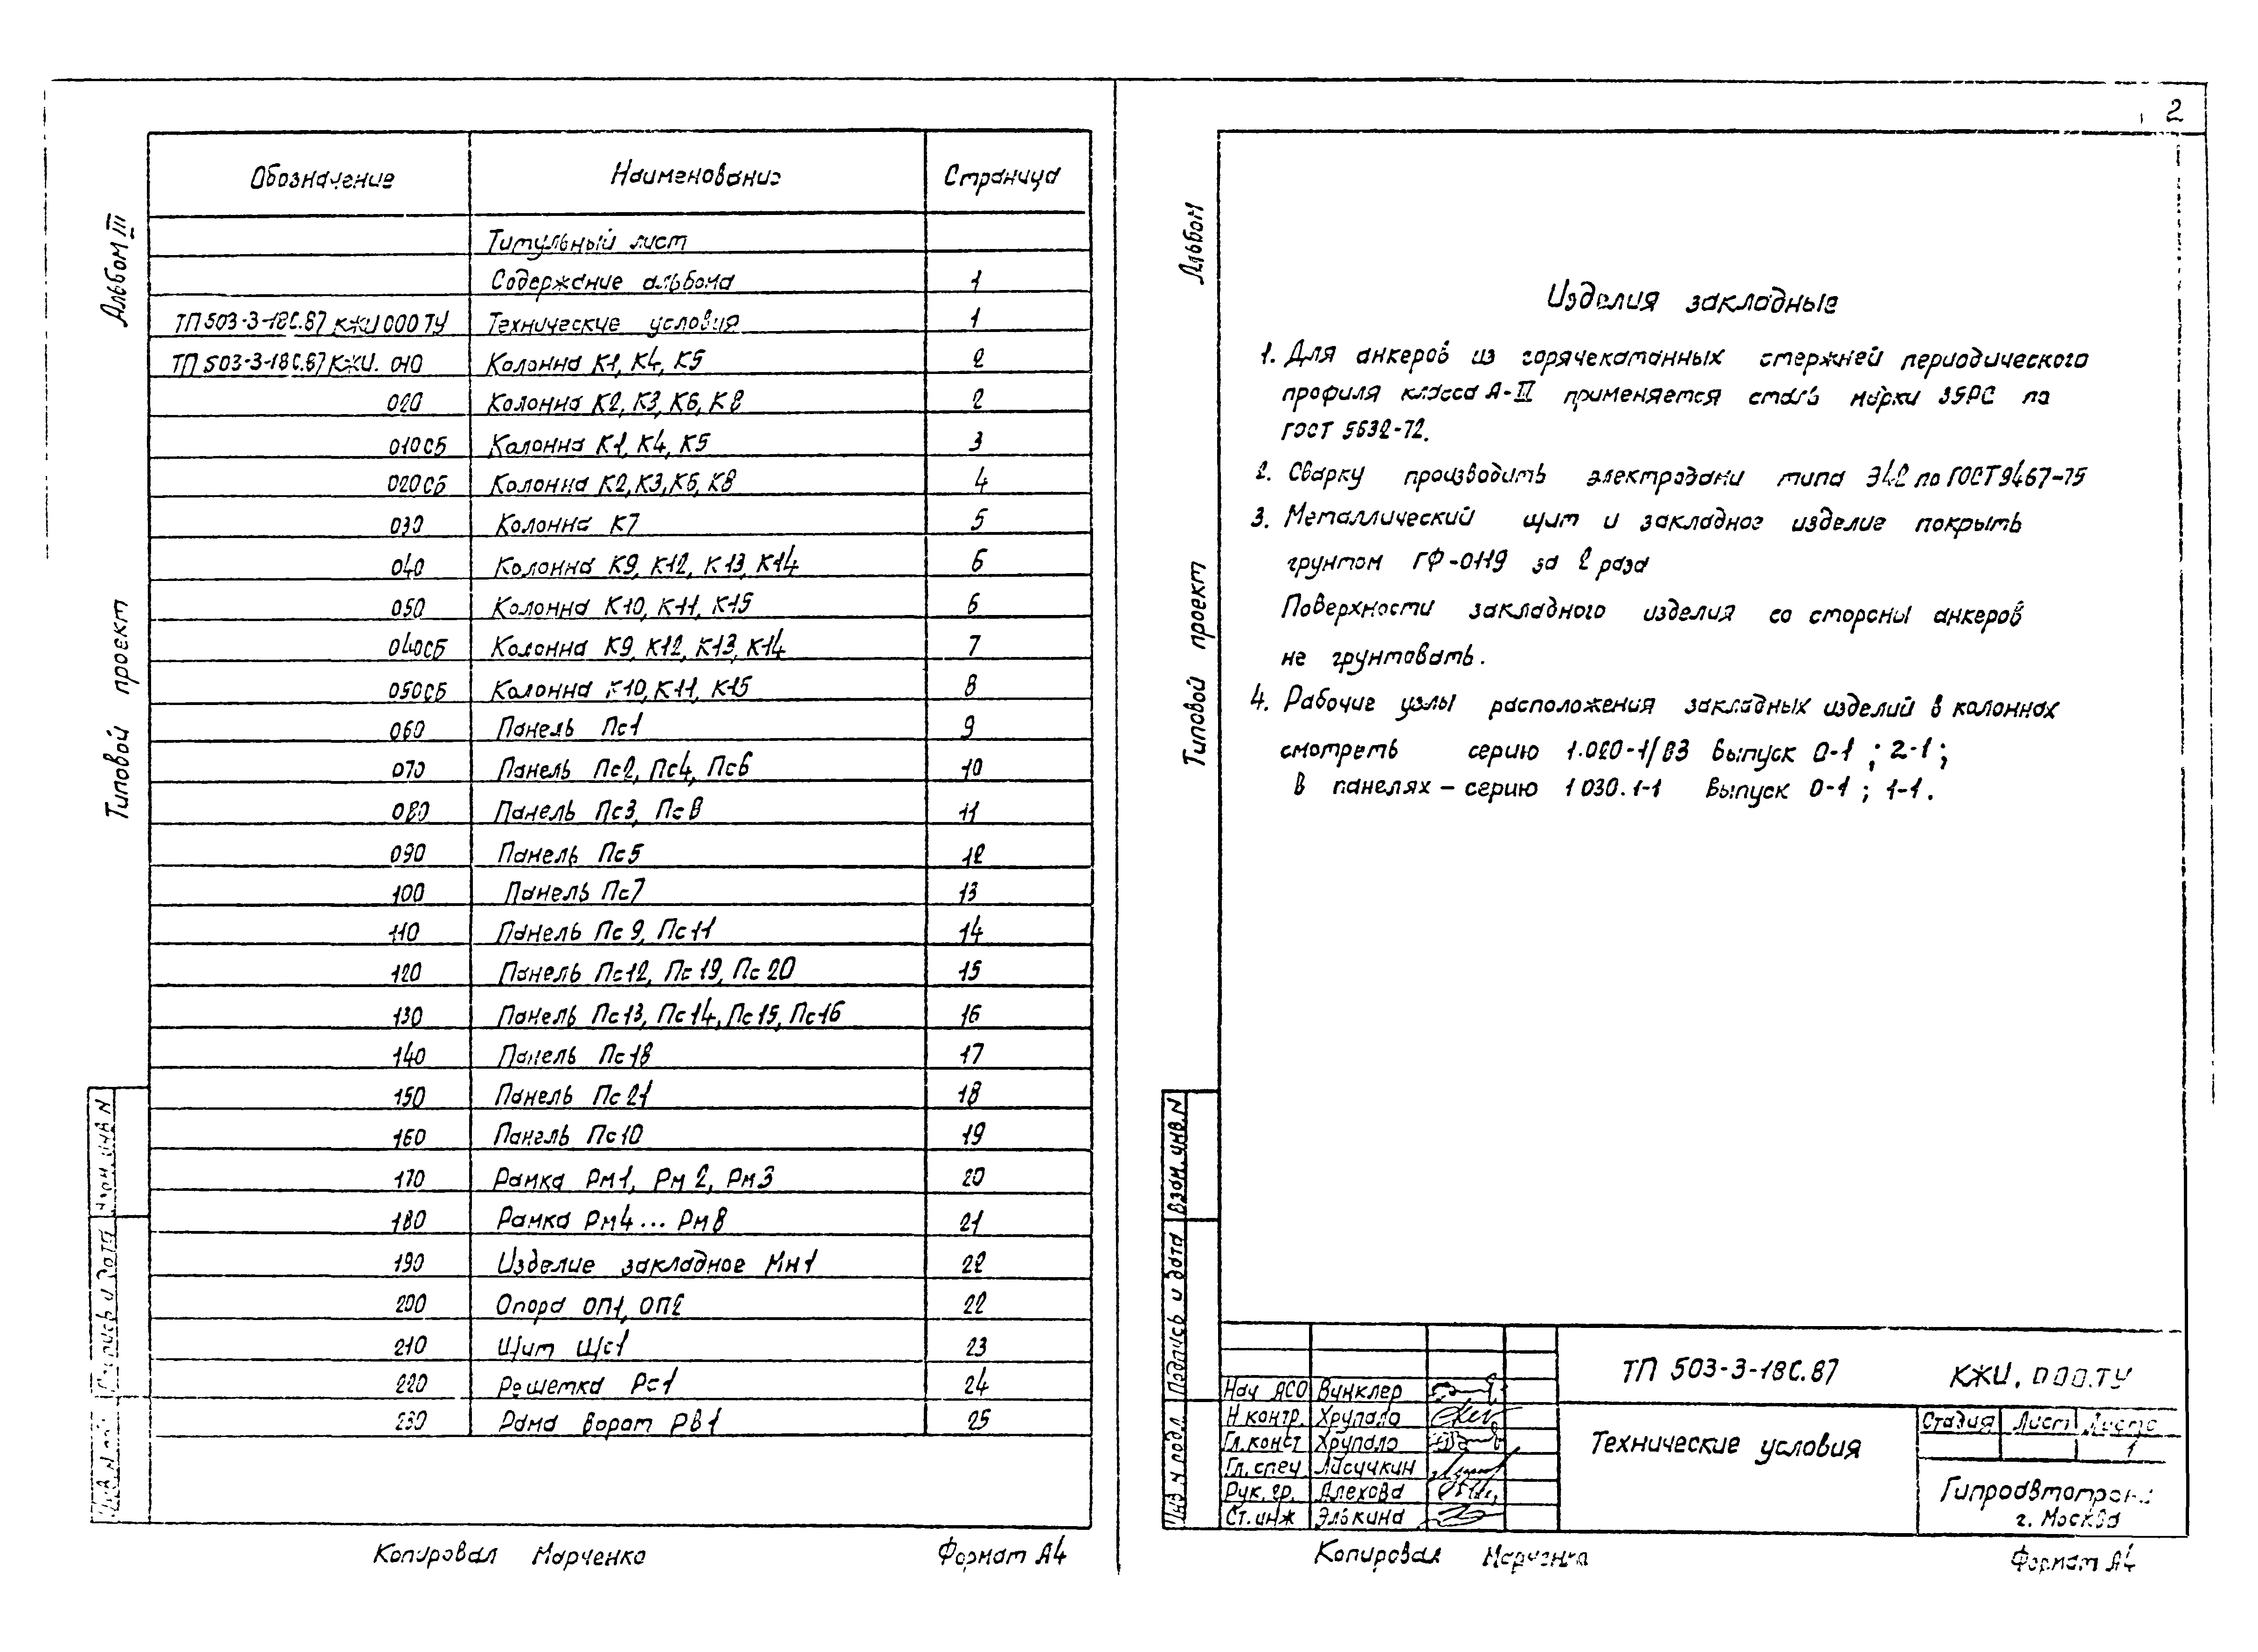 2
Альбом III
Типовой проект
Обозначение Наименование Страница
Титульный лист
Содержание альбома 1
ТП 503-3-18С.87 КЖИ 000 ТУ Технические условия 1
ТП 503-3-18С.87 КЖИ. 010 Колонна К1, К4, К5 2
020 Колонна К2, К3, К6, К8 2
010СБ Колонна К1, К4, К5 3
020СБ Колонна К2, К3, К6, К8 4
030 Колонна К7 5
040 Колонна К9, К12, К13, К14 6
050 Колонна К10, К11, К15 6
040СБ Колонна К9, К12, К13, К14 7
050СБ Колонна К10, К11, К15 8
060 Панель Пс1 9
070 Панель Пс2, Пс4, Пс6 10
080 Панель Пс3, Пс8 11
090 Панель Пс5 12
100 Панель Пс7 13
110 Панель Пс9, Пс11 14
120 Панель Пс12, Пс19, Пс20 15
130 Панель Пс13, Пс14, Пс15, Пс16 16
140 Панель Пс18 17
150 Панель Пс21 18
160 Панель Пс10 19
170 Рамка Рм1, Рм2, Рм3 20
180 Рамка Рм4... Рм8 21
190 Изделие закладное Мн1 22
200 Опора ОП1, ОП2 22
210 Щит Щс1 23
220 Решетка Рс1 24
230 Рама ворот РВ1 25
Копировал Марченко Формат А4
Альбом
Типовой проект
Изделия закладные
1. Для анкеров из горячекатанных стержней периодического
профиля класса А-II применяется сталь марки 35РС по
ГОСТ 5632-72.
2. Сварку производить электродами типа Э42 по ГОСТ 9467-75
3. Металлический щит и закладное изделие покрыть
грунтом ГФ-0119 за 2 раза
Поверхности закладного изделия со стороны анкеров
не грунтовать.
4. Рабочие узлы расположения закладных изделий в колоннах
смотреть серию 1.020-1/83 Выпуск 0-1; 2-1;
в панелях – серию 1 030.1-1 Выпуск 0-1; 1-1.
Взам. инв. N
Подпись и дата
Инв N подл.
ТП 503-3-18С.87 КЖИ. 000.ТУ
Нач АСО Винклер
Н контр. Хрупало
Гл. конст Хрупало
Гл. спец Лисичкин
Рук. гр. Алехова
Ст. инж Элькина
Технические условия
Стадия Лист
1
г. Москва
Копировал Марченко Формат А4